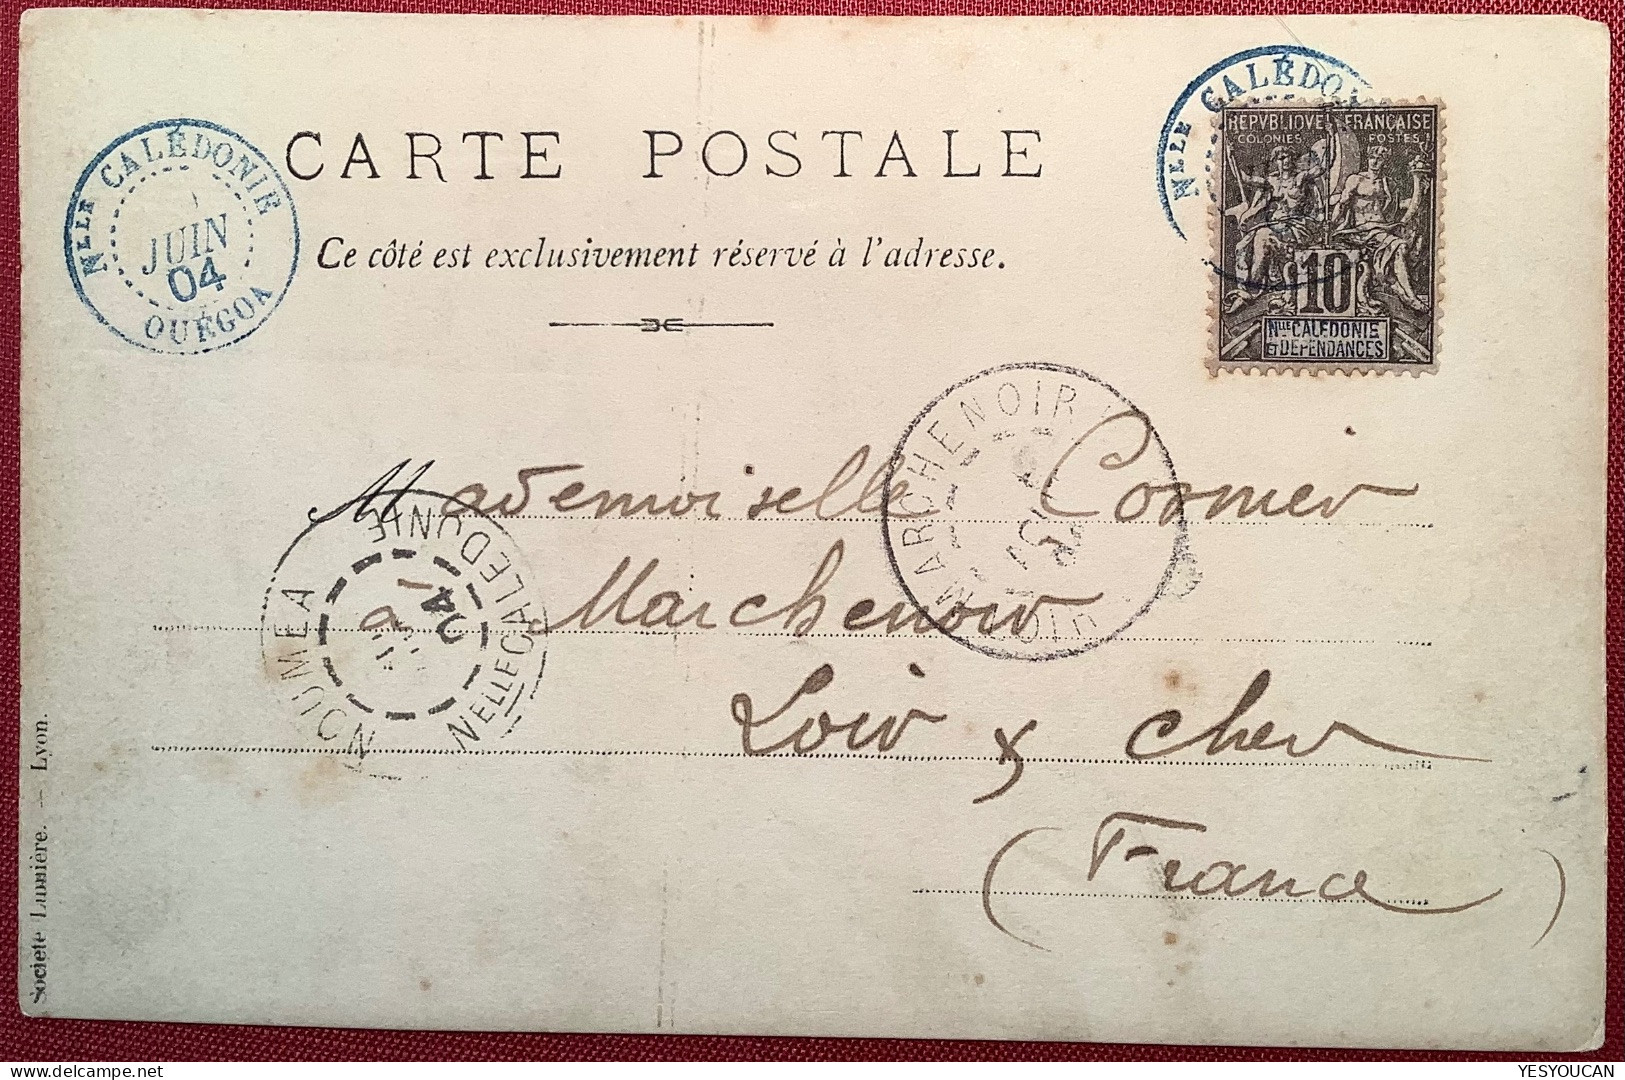 Nlle CALÉDONIE
JUIN
04
OUÉGOA
CARTE POSTALE
Ce côté est exclusivement réservé à l'adresse.
Nlle CALÉDON
REPVBLIQVE FRANÇAISE
COLONIES POSTES
10
Nlle CALEDONIE
ET DEPENDANCES
MARCHENOIR
Mademoiselle Cormier
à Marchenoir
Loir & Cher
(France)
NOUMEA
04
NELLE CALEDONIE
Société Lumière. — Lyon.
YESYOUCAN